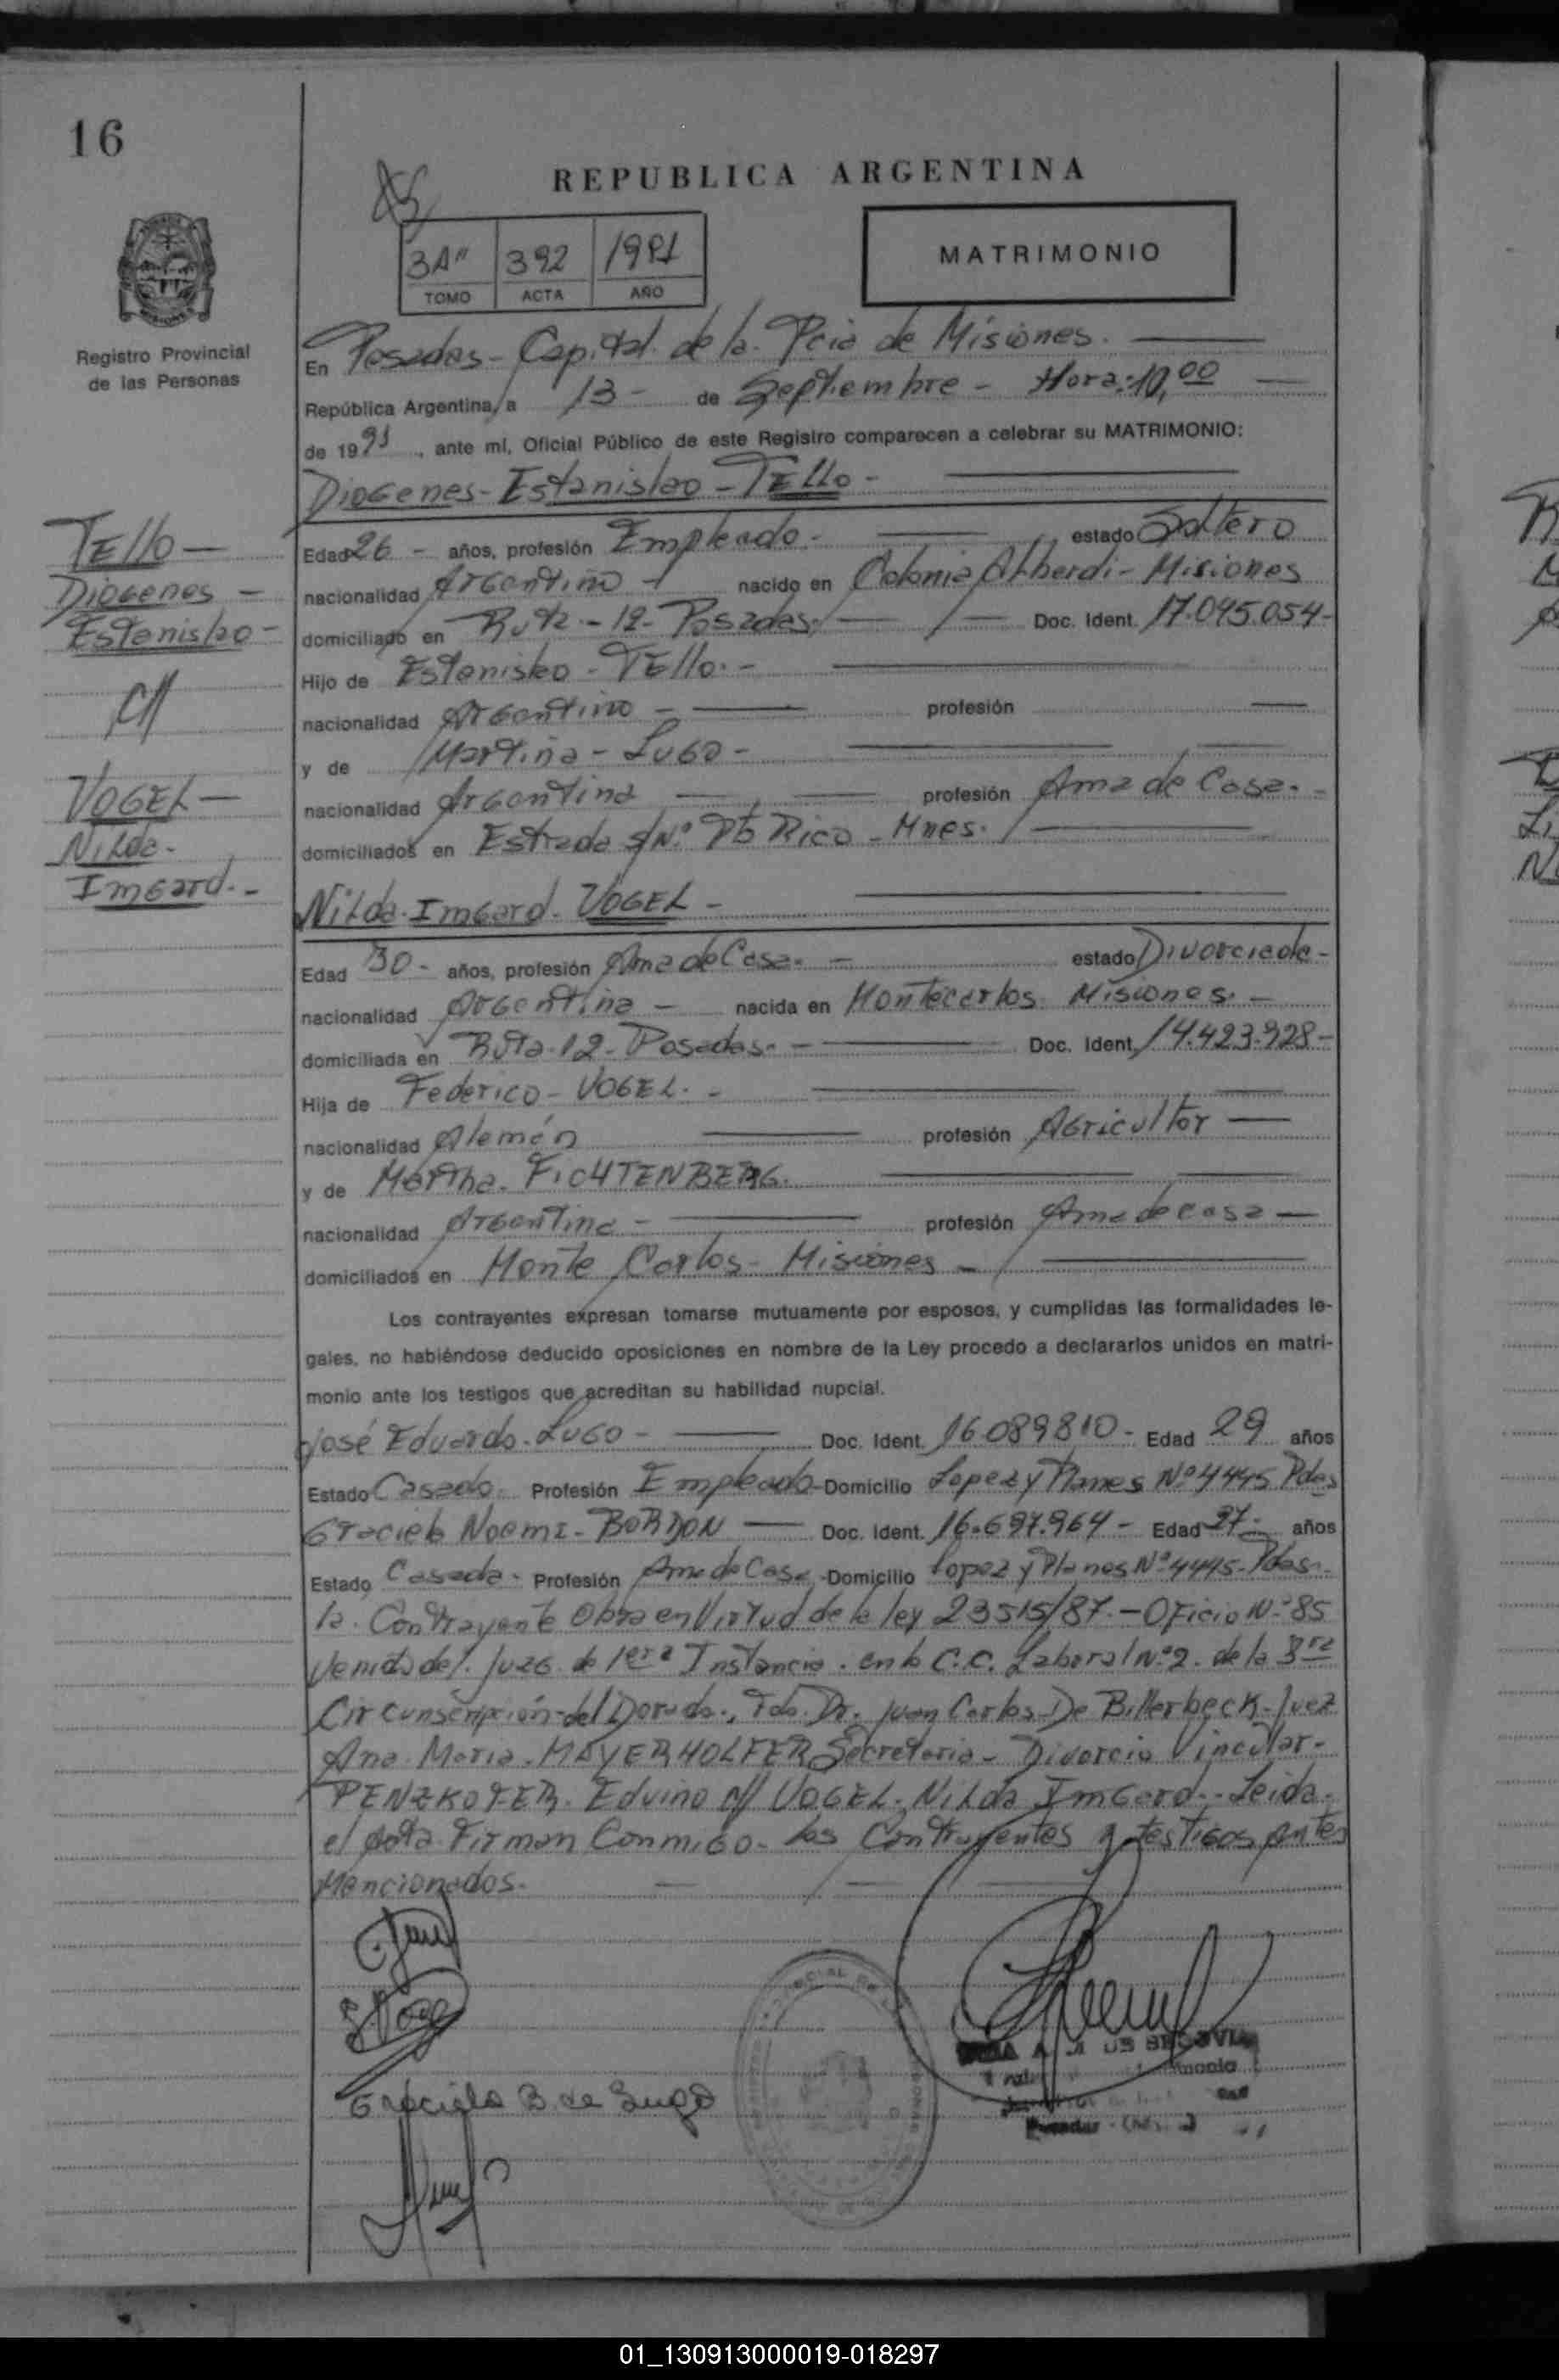 16
REPUBLICA ARGENTINA
3A" 392 1991
TOMO ACTA AÑO
MATRIMONIO
Registro Provincial
de las Personas
En Posadas - Capital de la Pcia de Misiones.
República Argentina, a 13 - de Septiembre - Hora: 10,00
de 1991, ante mí, Oficial Público de este Registro comparecen a celebrar su MATRIMONIO:
Diogenes - Estanislao - TEllo -
TEllo -
Diogenes -
Estanislao -
c//
VOGEL -
Nilda -
Imgard. -
Edad 26 - años, profesión Empleado - estado Soltero
nacionalidad Argentino - nacido en Colonia Alberdi - Misiones
domiciliado en Ruta - 12 - Posadas. Doc. Ident. 17.045.054 -
Hijo de Estanislao - TEllo. -
nacionalidad Argentino - profesión
y de Martina - Lugo -
nacionalidad Argentina profesión Ama de Casa. -
domiciliados en Estrada s/Nº Pto Rico - Mnes.
Nilda Imgard - VOGEL -
Edad 30 - años, profesión Ama de Casa. - estado Divorciada -
nacionalidad Argentina - nacida en Montecarlos Misiones. -
domiciliada en Ruta 12 - Posadas. - Doc. Ident. 14.423.928 -
Hija de Federico - VOGEL. -
nacionalidad Alemán profesión Agricultor
y de Martha - FICHTENBERG.
nacionalidad Argentina - profesión Ama de casa
domiciliados en Monte Carlos - Misiones -
Los contrayentes expresan tomarse mutuamente por esposos, y cumplidas las formalidades le-
gales, no habiéndose deducido oposiciones en nombre de la Ley procedo a declararlos unidos en matri-
monio ante los testigos que acreditan su habilidad nupcial.
José Eduardo - Lugo - Doc. Ident. 16.089.810 - Edad 29 años
Estado Casado - Profesión Empleado - Domicilio Lopez y Planes Nº 4445 Pdas
Graciela Noemi - BORDON Doc. Ident. 16.697.964 - Edad 27 - años
Estado Casada - Profesión Ama de Casa - Domicilio Lopez y Planes Nº 4445 - Pdas.
la Contrayente Obra en Virtud de la ley 23515/87. - Oficio Nº 85
Venido del Juzg. de 1era Instancia en lo C.C. Laboral Nº 2. de la 3ra
Circunscripción del Dorado., Fdo. Dr. Juan Carlos De Billerbeck - Juez
Ana Maria - MAYERHOLFER Secretaria - Divorcio Vincular -
PENZKOFER - Eduino c// VOGEL - Nilda Imgard - Leida
el Acta Firman Conmigo - los Contrayentes y testigos antes
Mencionados -
Graciela B de Lugo
SEGOVIA
Posadas
01_130913000019-018297